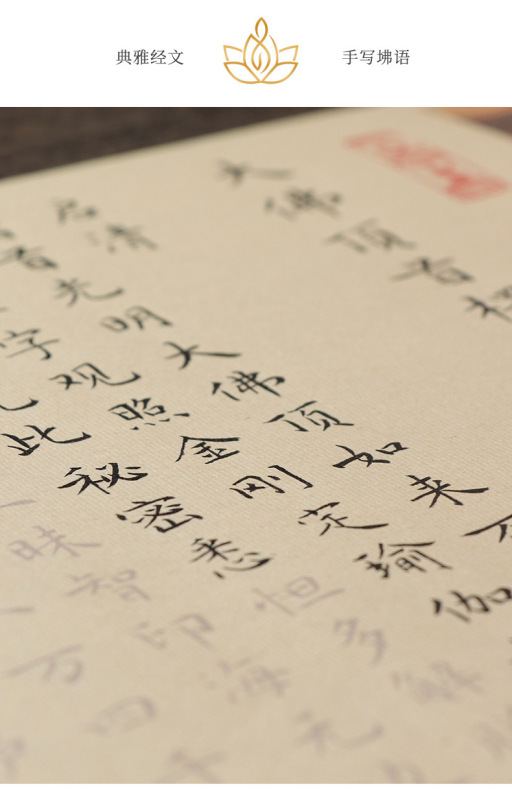 典雅经文
手写坲语
大佛顶首楞
名清
光明大佛顶如来
字观照金刚定瑜伽
此秘密悉恒多解
昧智印海
万四千